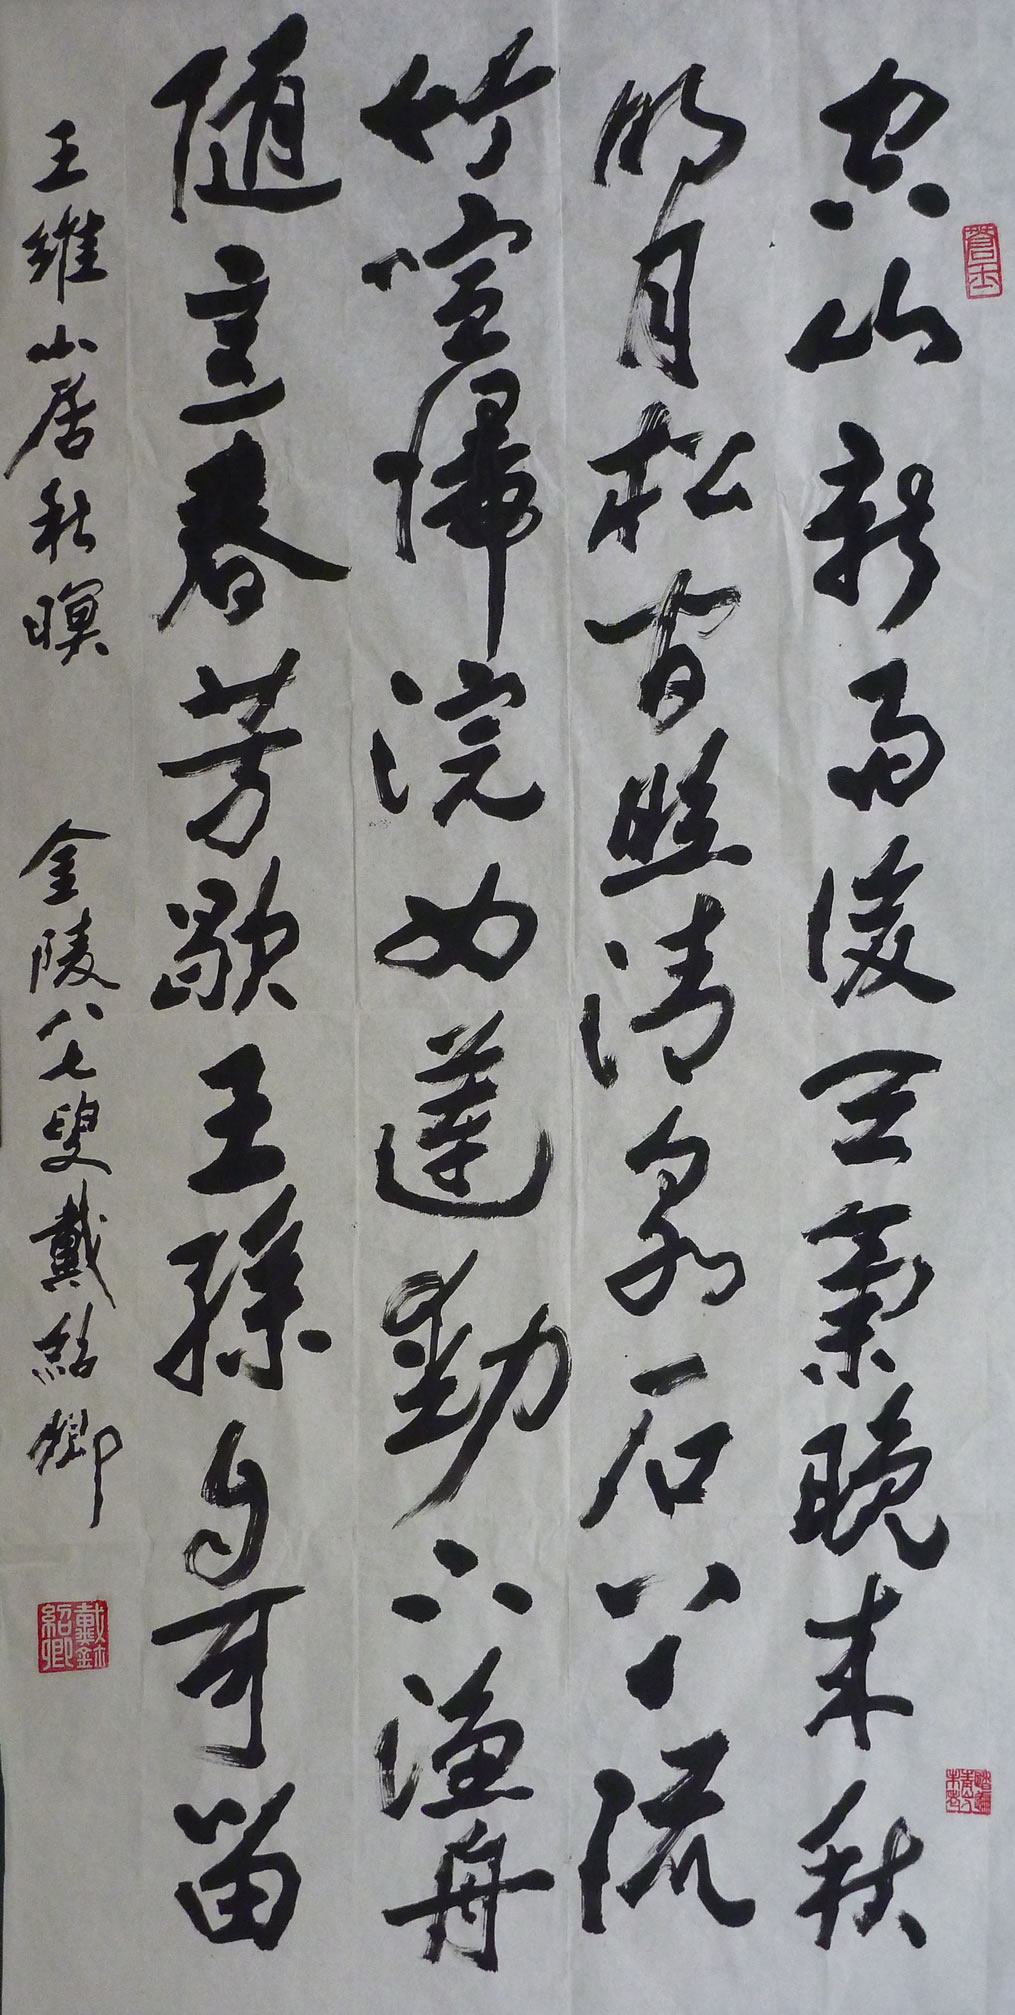 空山新雨後天氣晚来秋
明月松間照清泉石上流
竹喧歸浣女蓮動下漁舟
随意春芳歇王孫自可留
王維山居秋暝 金陵八七叟戴紹卿
踏遍青山人未老